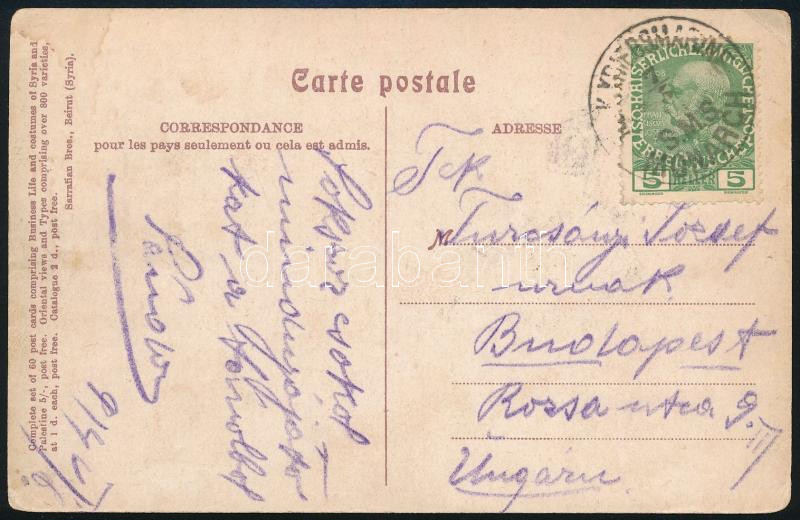 Carte postale
CORRESPONDANCE
pour les pays seulement ou cela est admis.
ADRESSE
Complete set of 60 post cards comprising Business Life and costumes of Syria and
Palestine 5/-, post free. Oriental views and Types comprising over 800 varieties,
at 1 d. each, post free. Catalogue 2 d., post free.
Sarrafian Bros., Beirut (Syria).
Sokszor csókol
mindnyájato-
kat a távolból
Sándor
Tek
M Turcsányi József
urnak
Budapest
Rozsa utca 9. III
Ungarn
K.u.K. KRIEGSMARINE
S.M.S.
MONARCH
5 5
darabanth